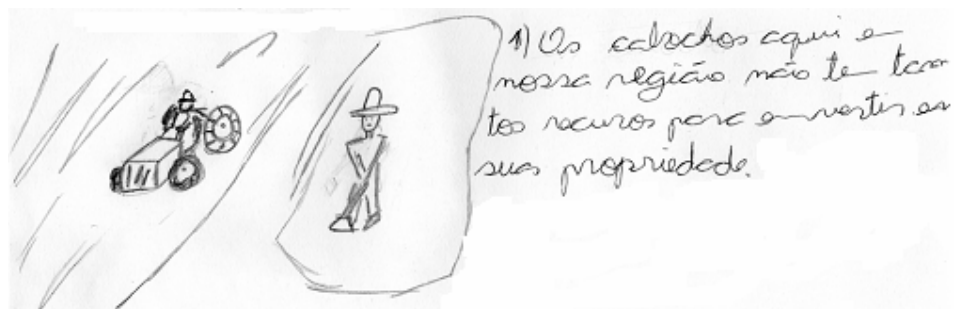 1) Os cabochos aqui e
nossa região não te tan
tos recuros para envertir en
sua propriedade.